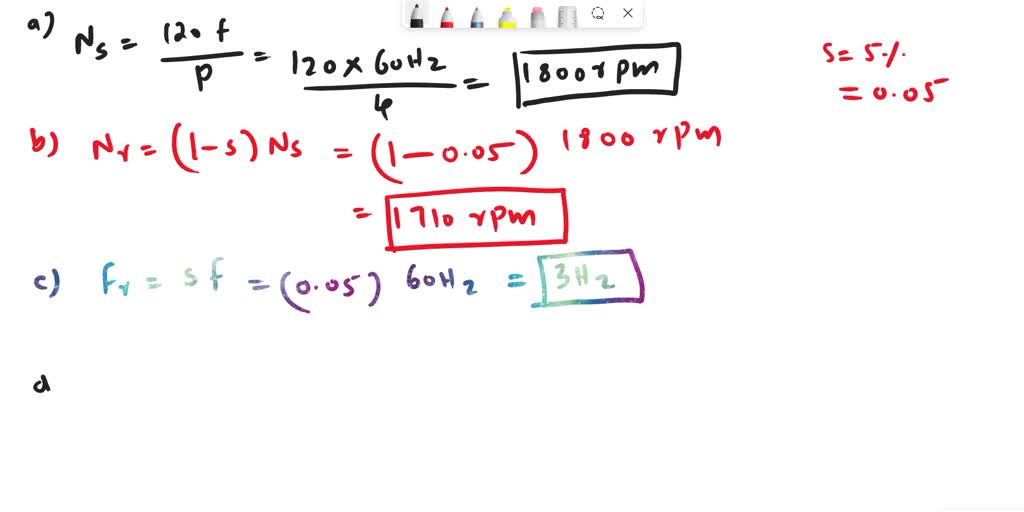 a) Ns = 120 f / P = 120 × 60Hz / 4 = 1800 rpm
s = 5%
= 0.05
b) Nr = (1-s) Ns = (1-0.05) 1800 rpm
= 1710 rpm
c) Fr = sf = (0.05) 60Hz = 3Hz
d